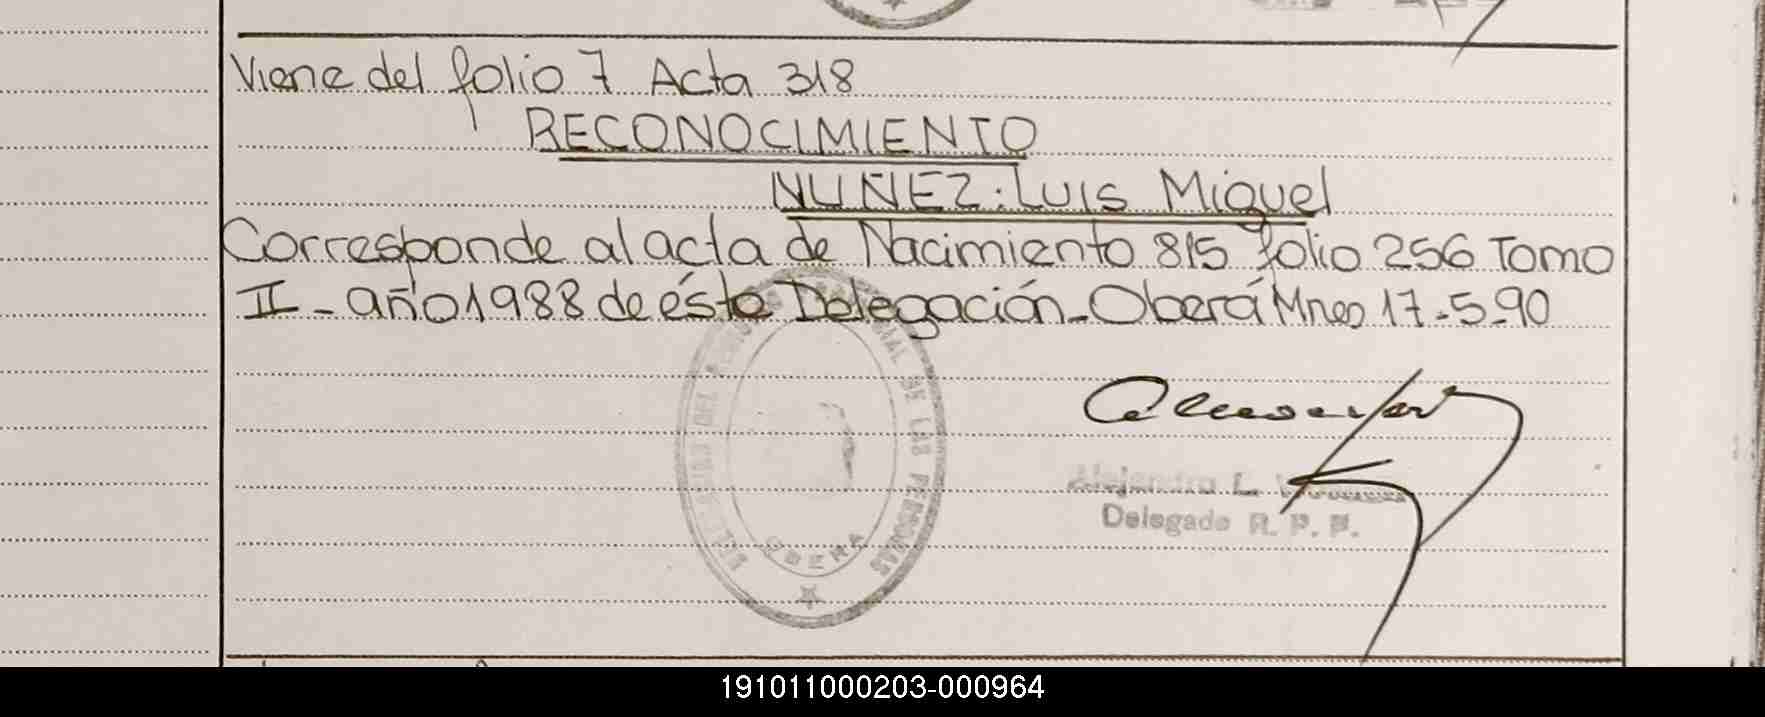 Viene del folio 7 Acta 318
RECONOCIMIENTO
NUÑEZ: Luis Miguel
Corresponde al acta de Nacimiento 815 folio 256 Tomo
II - año 1988 de ésta Delegación - Oberá Mnes 17-5-90
DEL REGISTRO DEL DE LAS PERSONAS
OBERA
Alejandro L.
Delegado R. P. P.
191011000203-000964